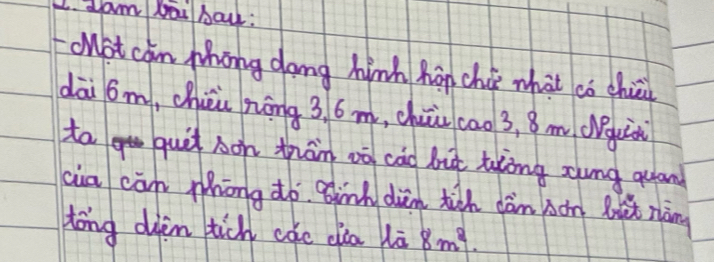 2. Làm bài sau:
- Một căn phòng dạng hình hộp chữ nhật có chiều
dài 6m, chiều rộng 3,6 m, chiều cao 3,8 m. Người
ta quét sơn trần và các bức tường xung quanh
của căn phòng đó. Tính diện tích cần sơn biết rằng
tổng diện tích các cửa là 8m².